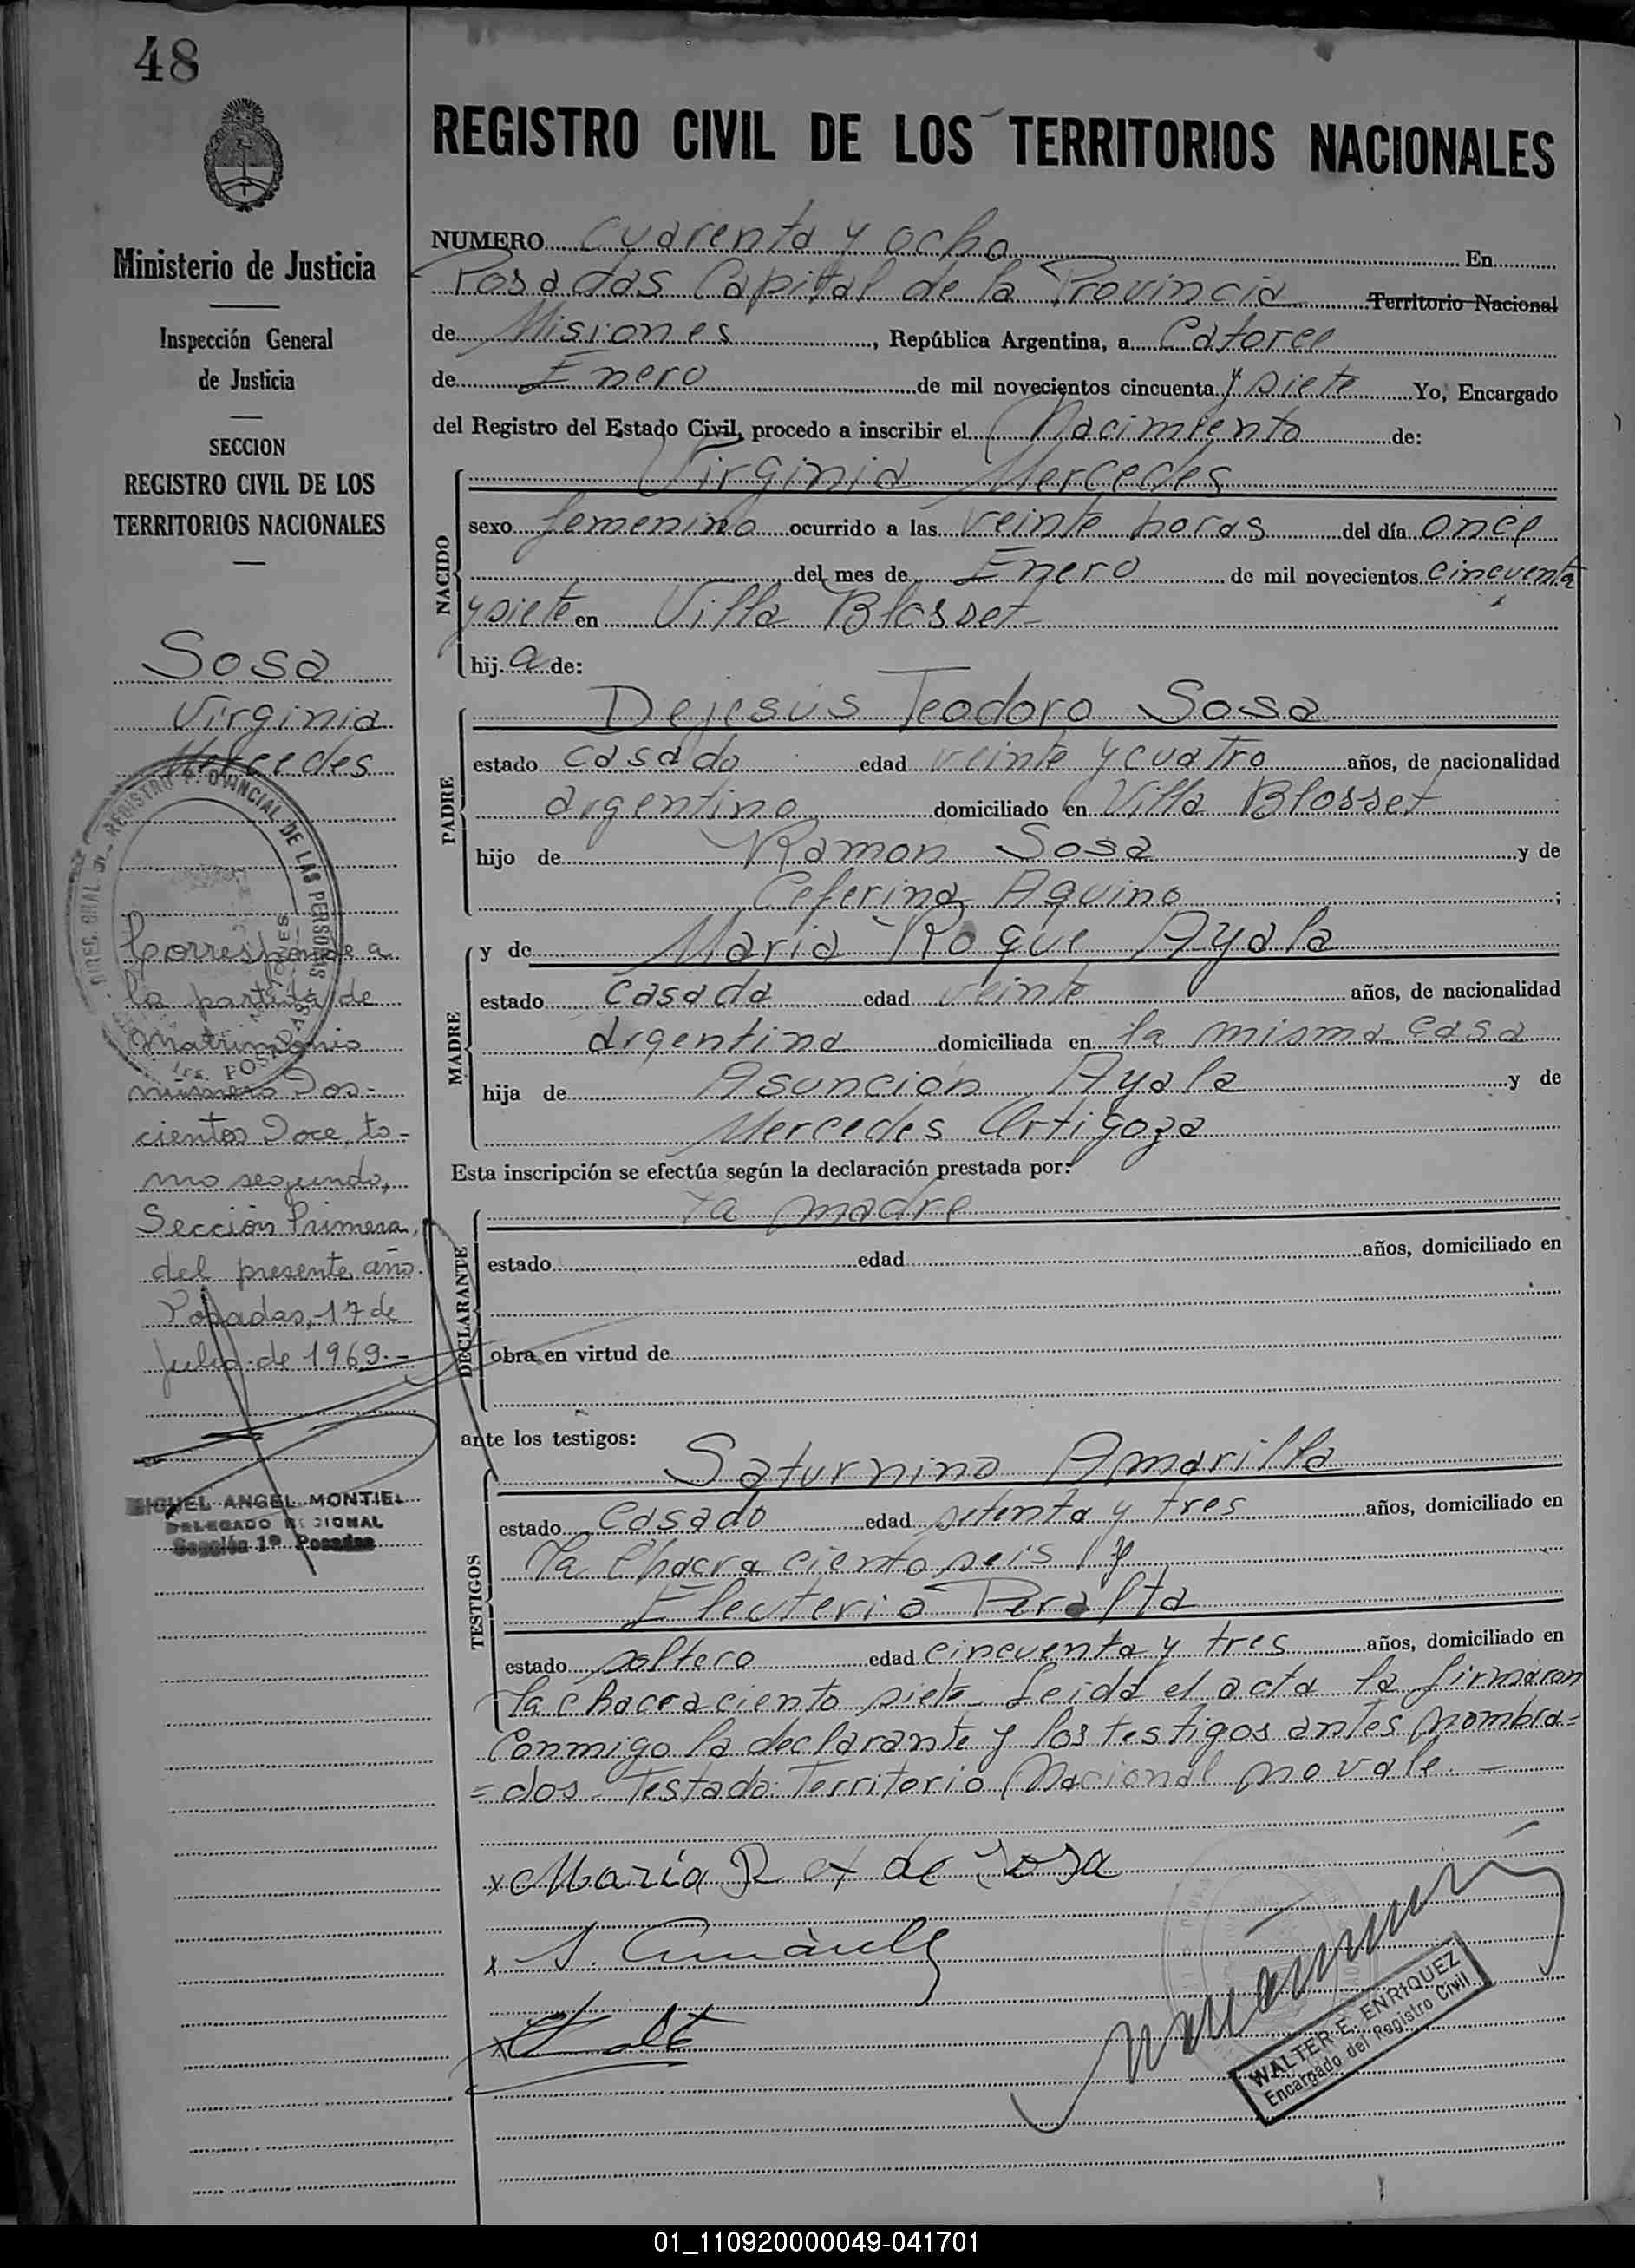 48
Ministerio de Justicia
Inspección General
de Justicia
SECCION
REGISTRO CIVIL DE LOS
TERRITORIOS NACIONALES
Sosa
Virginia
Mercedes
Corresponde a
la partida de
Matrimonio
número Dos-
cientos Doce, to-
mo segundo,
Sección Primera,
del presente año.
Posadas, 17 de
Julio de 1969.-
MIGUEL ANGEL MONTIEL
DELEGADO REGIONAL
Sección 1ª Posadas
REGISTRO CIVIL DE LOS TERRITORIOS NACIONALES
NUMERO cuarenta y ocho En
Posadas Capital de la Provincia Territorio Nacional
de Misiones, República Argentina, a Catorce
de Enero de mil novecientos cincuenta y siete Yo, Encargado
del Registro del Estado Civil, procedo a inscribir el Nacimiento de:
Virginia Mercedes
NACIDO
sexo femenino ocurrido a las veinte horas del día once
del mes de Enero de mil novecientos cincuenta
y siete en Villa Blosset-
hija de:
Dejesús Teodoro Sosa
PADRE
estado casado edad veinte y cuatro años, de nacionalidad
argentino domiciliado en Villa Blosset
hijo de Ramon Sosa y de
Ceferina Aquino;
y de Maria Roque Ayala
MADRE
estado casada edad veinte años, de nacionalidad
argentina domiciliada en la misma casa
hija de Asunción Ayala y de
Mercedes Artigoza
Esta inscripción se efectúa según la declaración prestada por:
la madre
DECLARANTE
estado edad años, domiciliado en
obra en virtud de
ante los testigos:
Saturnino Amarilla
TESTIGOS
estado casado edad setenta y tres años, domiciliado en
la chacra ciento seis y
Eleuterio Peralta
estado soltero edad cincuenta y tres años, domiciliado en
la chacra ciento siete- Leida el acta la firmaron
conmigo la declarante y los testigos antes nombra=
=dos- Testado: Territorio Nacional no vale.-
x Maria R A de Sosa
x S. Amarilla
WALTER E. ENRIQUEZ
Encargado del Registro Civil
01_110920000049-041701